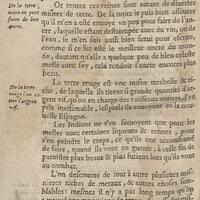 Or toutes ces veines sont autant de diuerses
De la terre noire on peut faire de bon ancre.
mines de terre. De la noire ie puis bien asseurer
qu'il m'en a esté enuoyé vn peu pour faire de l'an-
cre, laquelle estant destrempée auec du vin, ou de
l'eau, ie m'en suis aussi bien serui pour escrire,
comme si ce fut esté le meilleur ancre du mon-
de, d'autant qu'elle a quelque peu de bleu celeste
meslé auec soy, cela rendoit l'ancre encores plus
beau.
La terre rouge est vne mine tresbelle & ri-
De la terre rouge on en tire l'argent
che, de laquelle ils tirent si grande quantité d'ar-
gent vif, qu'on en charge des vaisseaux entiers, d'vn
prix inestimable, lesquels ils enuoyent en la nou-
uelle Espagne.
Les Indiens ne s'en seruoyent que pour les
mesler auec certaines liqueurs & resines, pour
s'en peindre le corps, ce qu'ils ont accoustumé
de faire, quand ils vont en guerre, à celle fin de
paroistre plus beaux & plus furieux lors qu'ils vont
au combat.
L'on descouure de jour à autre plusieurs mi-
nieres riches de metaux, & autres choses sem-
blables: mesmes il n'y a pas long temps que